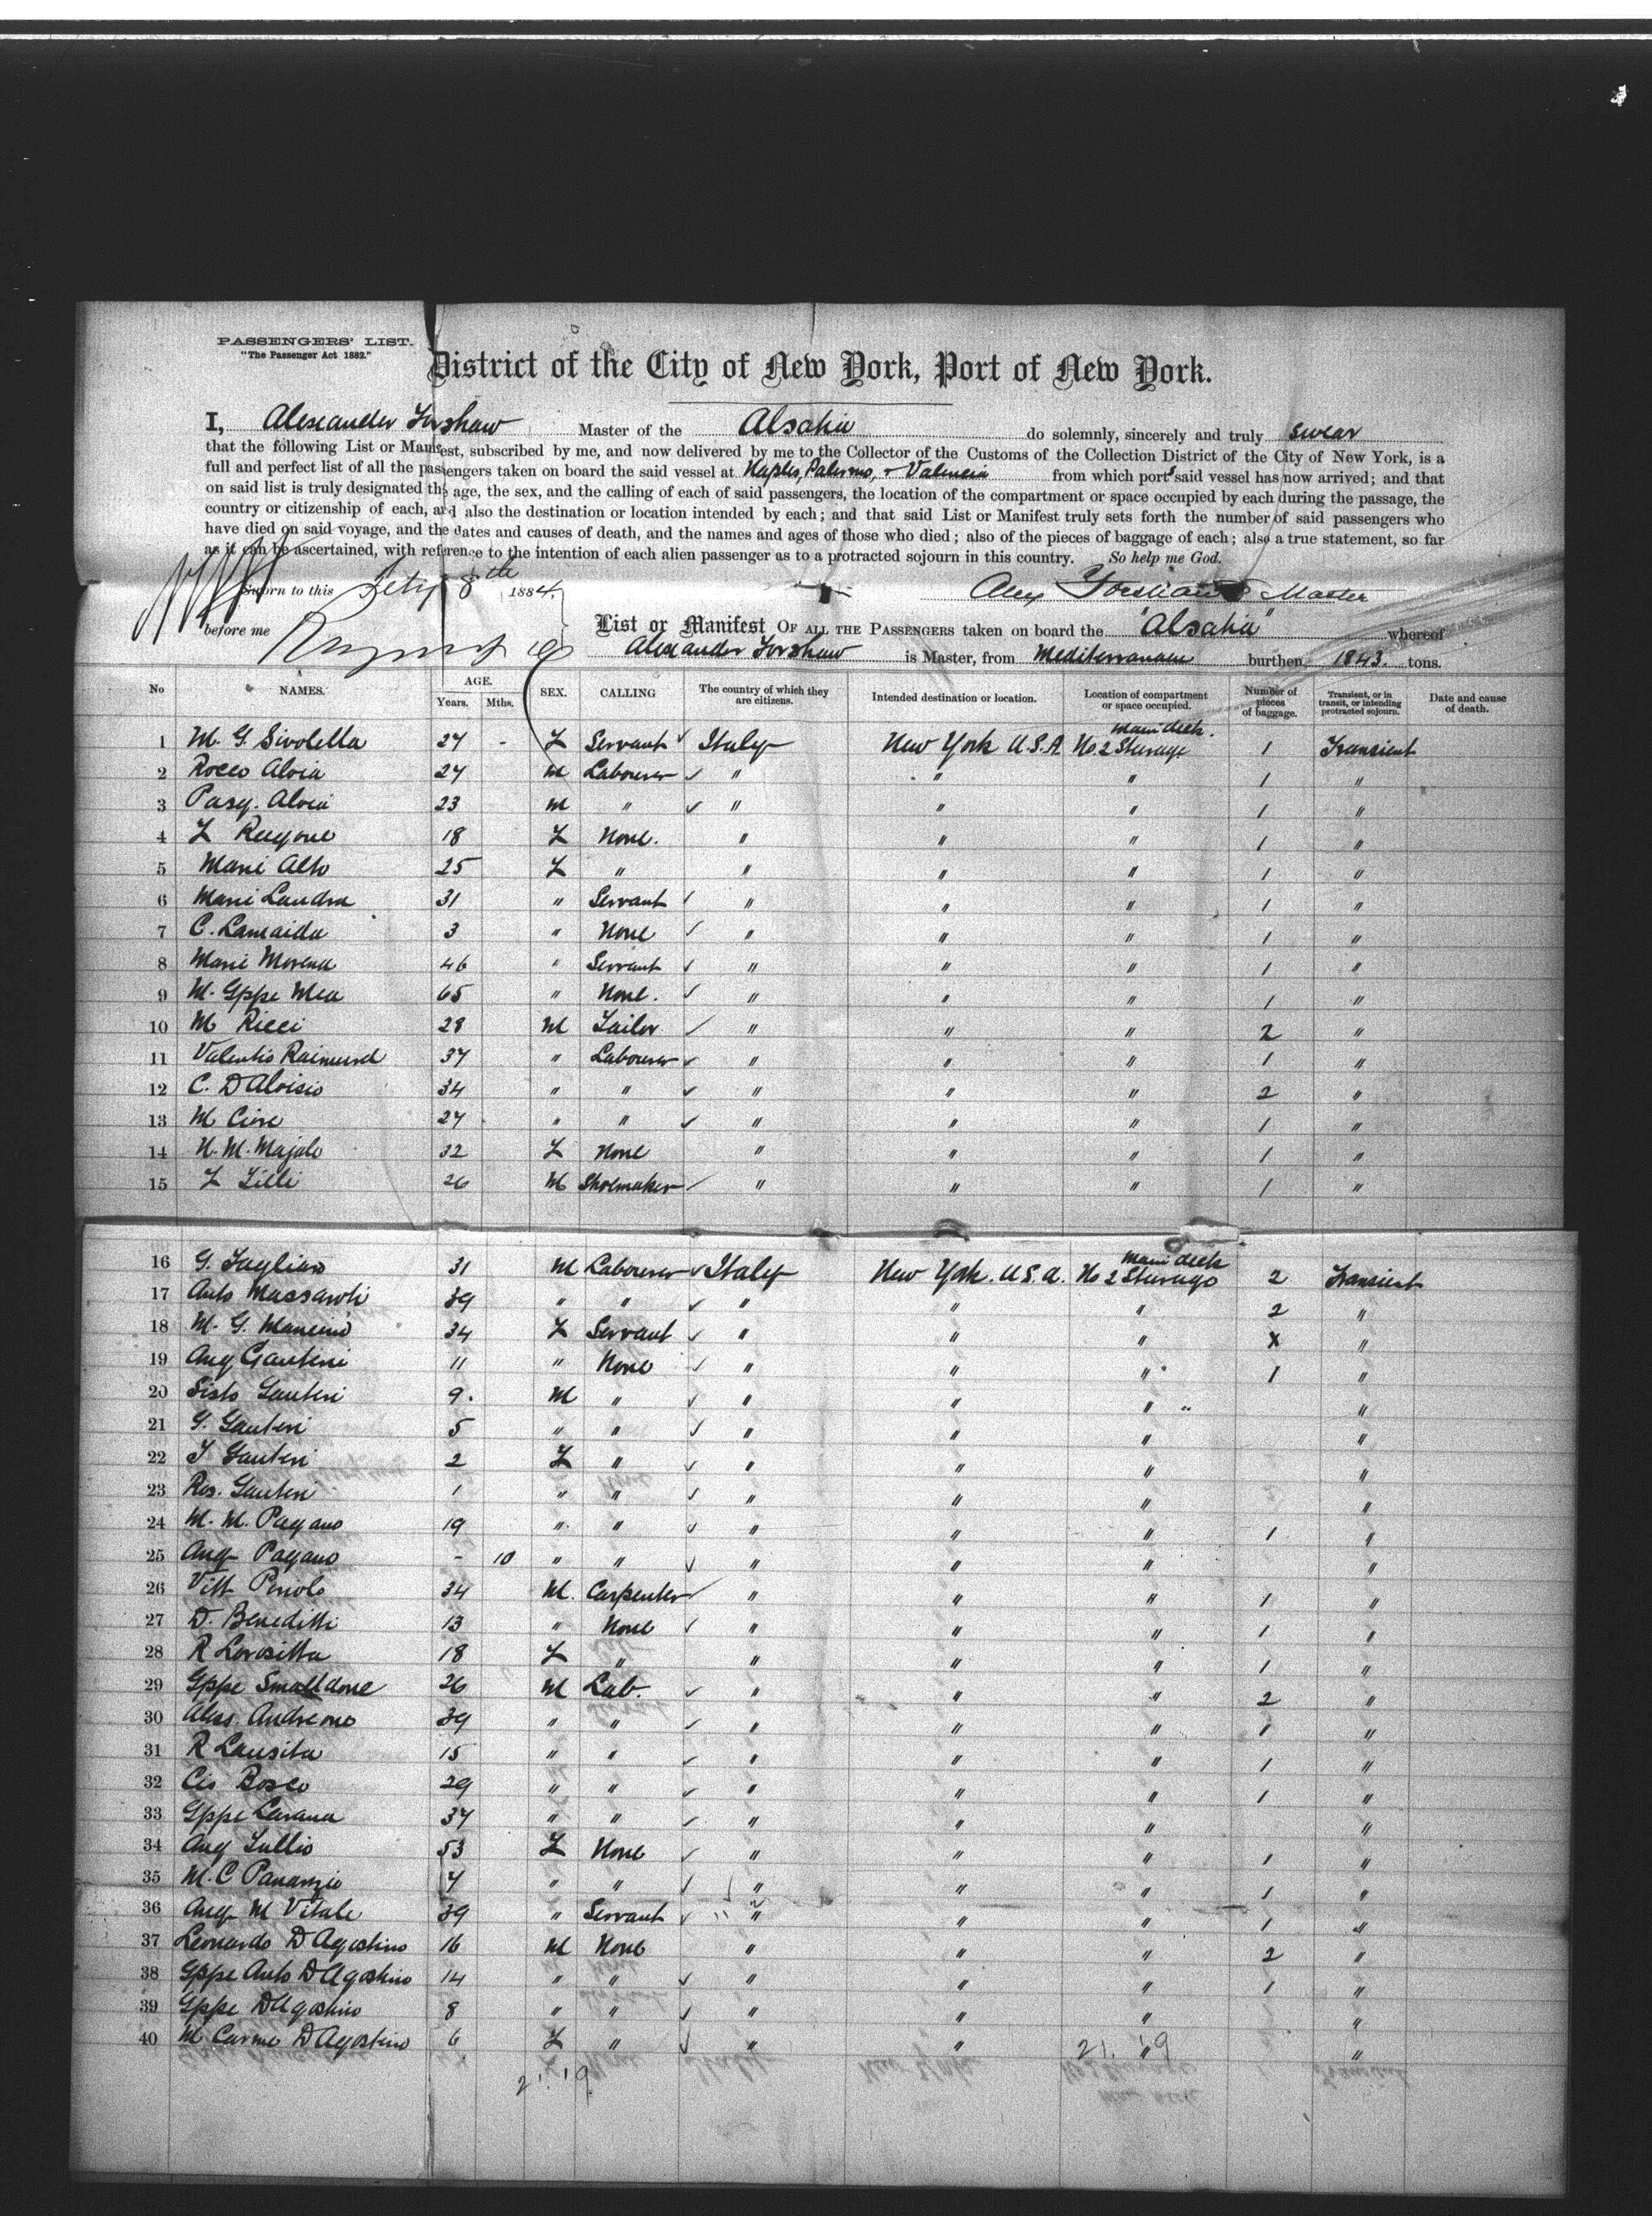 PASSENGERS' LIST.
"The Passenger Act 1882."
District of the City of New York, Port of New York.
I, Alexander Forshaw Master of the Alsatia do solemnly, sincerely and truly swear
that the following List or Manifest, subscribed by me, and now delivered by me to the Collector of the Customs of the Collection District of the City of New York, is a
full and perfect list of all the passengers taken on board the said vessel at Naples, Palermo, + Valencia from which ports said vessel has now arrived; and that
on said list is truly designated the age, the sex, and the calling of each of said passengers, the location of the compartment or space occupied by each during the passage, the
country or citizenship of each, and also the destination or location intended by each; and that said List or Manifest truly sets forth the number of said passengers who
have died on said voyage, and the dates and causes of death, and the names and ages of those who died; also of the pieces of baggage of each; also a true statement, so far
as it can be ascertained, with reference to the intention of each alien passenger as to a protracted sojourn in this country. So help me God.
Sworn to this 8th 1884, Alex Forshaw Master
before me
List or Manifest OF ALL THE PASSENGERS taken on board the "Alsatia" whereof
Alexander Forshaw is Master, from Mediterranean burthen 1843. tons.
No NAMES. AGE. Years. Mths. SEX. CALLING The country of which they are citizens. Intended destination or location. Location of compartment or space occupied. Number of pieces of baggage. Transient, or in transit, or intending protracted sojourn. Date and cause of death.
1 M. G. Sivolella 27 - F Servant Italy New York U.S.A. No. 2 Steerage main deck. 1 Transient
2 Rocco Aloia 27 M Labourer " " " 1 "
3 Pasq. Aloia 23 M " " " " 1 "
4 F 18 F None. " " " 1 "
5 Marie Alto 25 F " " " " 1 "
6 Marie Landra 31 " Servant " " " 1 "
7 C. Lamaida 3 " None " " " 1 "
8 Marie Morena 46 " Servant " " " 1 "
9 M. Gppe Mea 65 " None. " " " 1 "
10 M Ricci 28 M Tailor " " " 2 "
11 Valentio Raimund 37 " Labourer " " " 1 "
12 C. D Aloisio 34 " " " " " 2 "
13 M 27 " " " " " 1 "
14 N. M. Majolo 32 F None " " " 1 "
15 F Lilli 26 M Shoemaker " " " 1 "
16 G. Tagliao 31 M Labourer Italy New York. U.S.A. No 2 Steerage main deck 2 Transient
17 Anto Massaroti 39 " " " " " 2 "
18 M. G. Mancino 34 F Servant " " " x "
19 Ang Gauteri 11 " None " " " 1 "
20 Sisto Gauteri 9. M " " " " "
21 G. Gauteri 5 " " " " " "
22 F Gauteri 2 F " " " " "
23 Ros. Gauteri 1 " " " " " "
24 M. M. Pagano 19 " " " " " 1 "
25 Ang Pagano - 10 " " " " " "
26 Vitt Periolo 34 M. Carpenter " " " 1 "
27 D. Beneditti 13 " None " " " 1 "
28 R Lorositta 18 F " " " " 1 "
29 Gppe Smalldone 26 M Lab. " " " 2 "
30 Aless. Andreono 39 " " " " " 1 "
31 R Lausita 15 " " " " " 1 "
32 Cis Bosco 29 " " " " " 1 "
33 Gppe Lavana 37 " " " " " "
34 Ang Tullio 53 F None " " " 1 "
35 M. C 7 " " " " " 1 "
36 Ang M Vitale 39 " Servant " " " 1 "
37 Leonardo D Agostino 16 M None " " " 2 "
38 Gppe Anto D Agostino 14 " " " " " 1 "
39 Gppe D Agostino 8 " " " " " "
40 M Carme D Agostino 6 F " " " " "
21. 19
21. 19